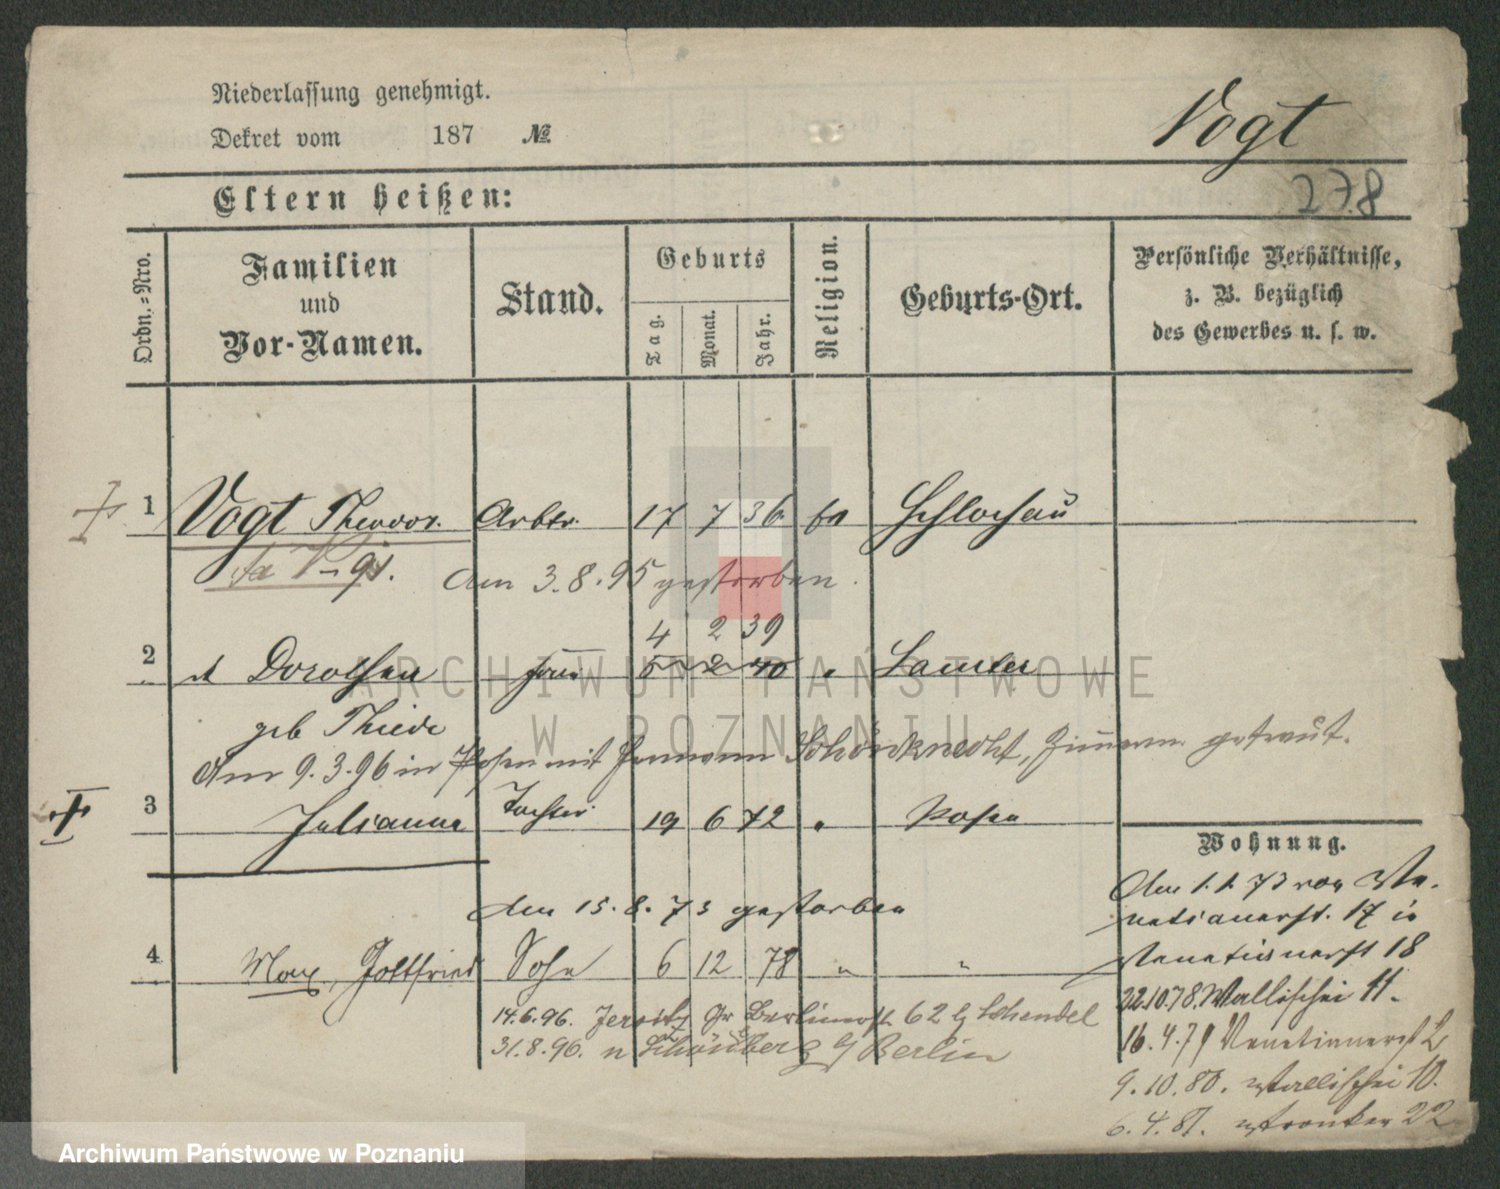 Niederlassung genehmigt.
Dekret vom 187 №
Vogt
278
Eltern heißen:
Ordn.-Nro.
Familien
und
Vor-Namen.
Stand.
Geburts
Tag.
Monat.
Jahr.
Religion.
Geburts-Ort.
Persönliche Verhältnisse,
z. B. bezüglich
des Gewerbes u. s. w.
1 Vogt Theodor. Arbtr. 17 7 36 Schlochau
91. am 3.8.95 gestorben.
4 2 39
2 Dorothea Frau 5 2 40 " Samter
geb Thiede
Am 9.3.96 in Posen mit Hermann Schönknecht, Zimmerm. getraut.
3 Julianna Tochter 19 6 72 " Posen
Wohnung.
den 15.8.73 gestorben
4 Max, Gottfried Sohn 6 12 78 " "
14.6.96. Jersitz Gr Berlinerst. 62 b Schendel
31.8.96. n Schöneberg b/ Berlin
Am 1.1.73 von Ve-
netianerst. 17 in
Venetianerst 18
22.10.78. Wallischei 11.
16.4.79 Venetianerst 2
9.10.80. Wallischei 10.
6.4.81. Wronker 22
ARCHIWUM PAŃSTWOWE
W POZNANIU
Archiwum Państwowe w Poznaniu